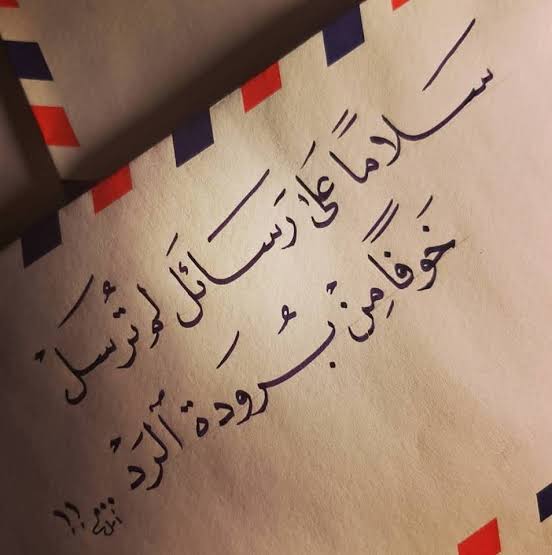 سَلامًا عَلىٰ رَسَائل لم تُرسَلْ
خَوفًا مِنْ بُرُودَة ٱلرَدْ
!!